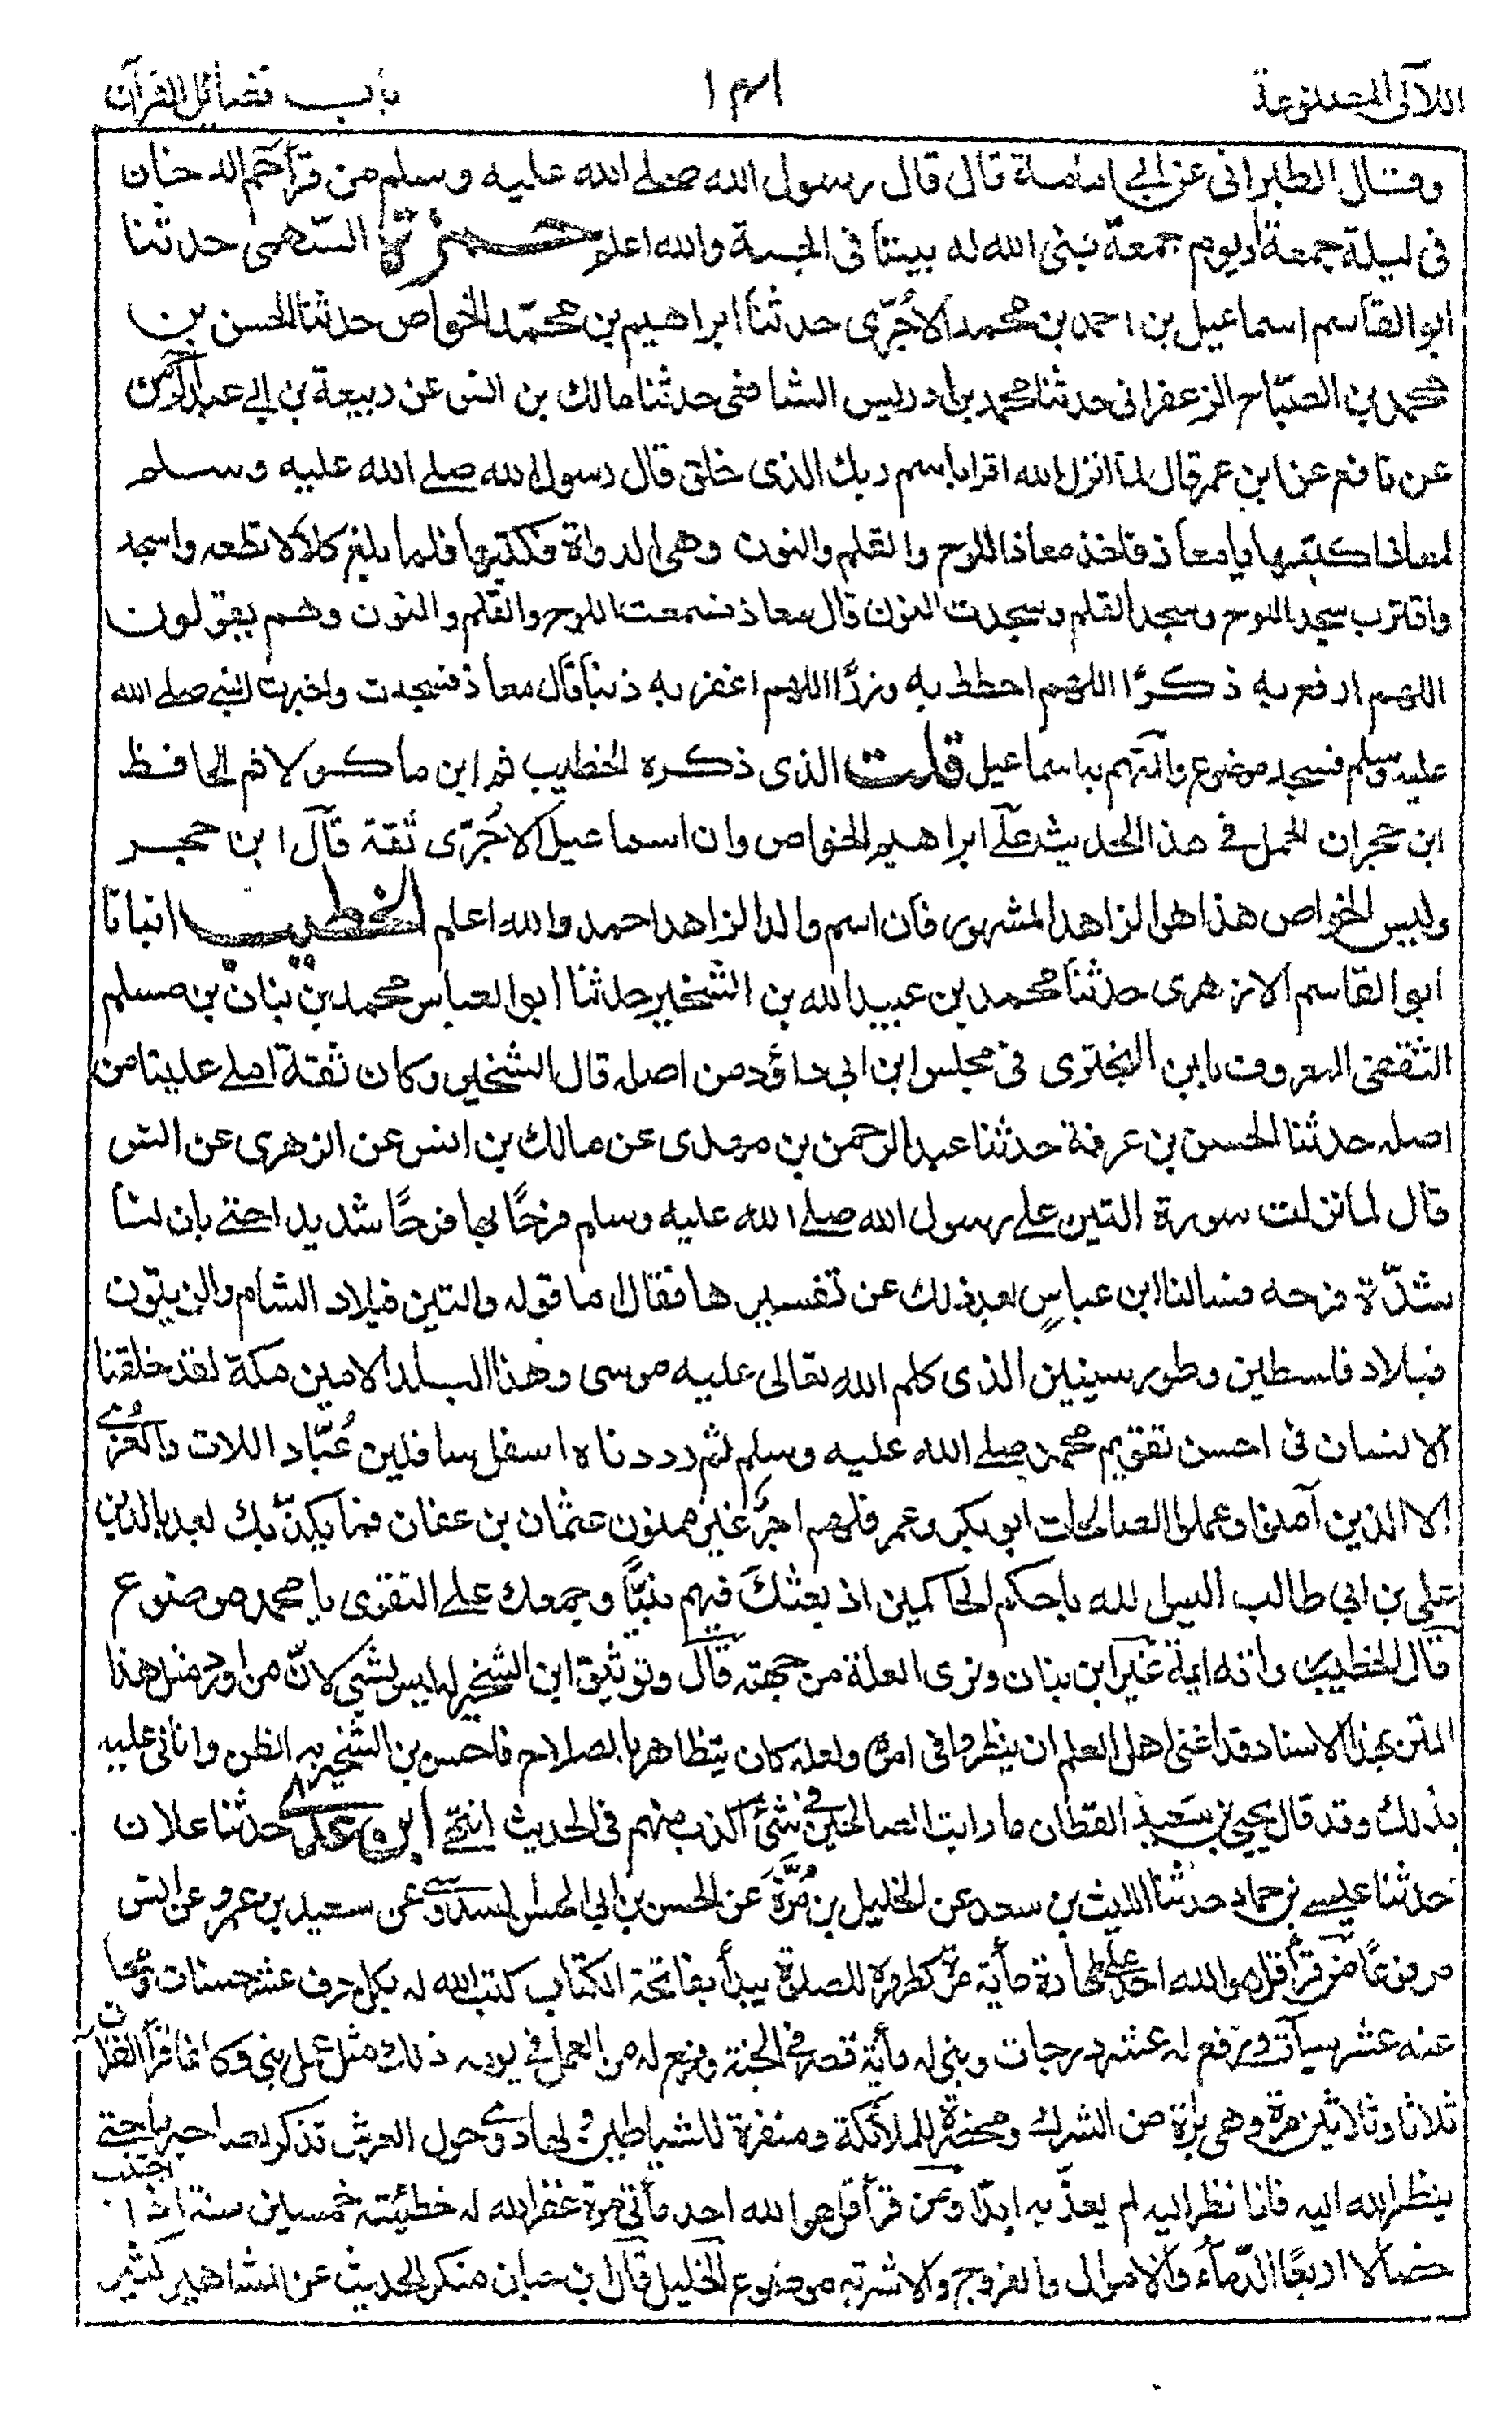 اللآلى المصنوعة ١٣١ باب فضائل القرآن
وقال الطبرانى عن ابى امامة قال قال رسول الله صلے الله عليه وسلم من قرأ حم الدخان
فى ليلة جمعة او يوم جمعة بنى الله له بيتا فى الجنة والله اعلم حمزة السهمى حدثنا
ابو القاسم اسماعيل بن احمد بن محمد الآجُرّى حدثنا ابراهيم بن محمّد الخواص حدثنا الحسن بن
محمد بن الصبّاح الزعفرانى حدثنا محمد بن ادريس الشافعى حدثنا مالك بن انس عن ربيعة بن ابے عبد الرحمن
عن نافع عن ابن عمر قال لما انزل الله اقرا باسم ربك الذى خلق قال رسول الله صلے الله عليه وسلم
لمعاذ اكتبها يا معاذ فاخذ معاذ اللوح والقلم والنون وهى الدواة فكتبها فلما بلغ كلا لا تطعه واسجد
واقترب سجد اللوح وسجد القلم وسجدت النون قال معاذ فسمعت اللوح والقلم والنون وهم يقولون
اللهم ارفع به ذكرًا اللهم احطط به وزرًا اللهم اغفر به ذنبا قال معاذ فسجدت واخبرت النبى صلے الله
عليه وسلم فسجد موضوع والمتهم به اسماعيل قلت الذى ذكره الخطيب ثم ابن ماكولا ثم الحافظ
ابن حجر ان الحمل فے هذا الحديث علے ابراهيم الخواص وان اسماعيل الآجُرّى ثقة قال ابن حجر
وليس الخواص هذا هو الزاهد المشهور فان اسم والد الزاهد احمد والله اعلم الخطيب انبانا
ابو القاسم الازهرى حدثنا محمد بن عبيد الله بن الشخير حدثنا ابو العباس محمد بن بنان بن مسلم
الثقفى المعروف بابن البختري فى مجلس ابن ابى داؤد من اصله قال الشخير وكان ثقة املے علينا من
اصله حدثنا الحسن بن عرفة حدثنا عبد الرحمن بن مهدى عن مالك بن انس عن الزهرى عن انس
قال لما نزلت سورة التين على رسول الله صلے الله عليه وسلم فرح بها فرحًا شديدا حتے بان لنا
شدّة فرحه فسالنا ابن عباسٍ بعد ذلك عن تفسيرها فقال اما قوله والتين فبلاد الشام والزيتون
فبلاد فلسطين وطور سينين الذى كلم الله تعالى عليه موسى وهذا البلد الامين مكة لقد خلقنا
الانسان فى احسن تقويم محمد صلے الله عليه وسلم ثم رددناه اسفل سافلين عُبّاد اللات والعُزّے
الا الذين آمنوا وعملوا الصالحات ابو بكر وعمر فلهم اجر غير ممنون عثمان بن عفان فما يكذّبك بعد بالدين
على بن ابى طالب اليس الله باحكم الحاكمين اذ بعثك فيهم نبيًّا وجمعك علے التقوى يا محمد موضوع
قال الخطيب رواته ايمة غير ابن بنان ونرى العلة من جهته قال وتوثيق ابن الشخير له ليس بشئ لانّ من اورد مثل هذا
المتن بهذا الاسناد قد اغنى اهل العلم ان ينظروا فى امره ولعله كان يتظاهر بالصلاح فاحسن بن الشخير به الظن واثنى عليه
بذلك وقد قال يحيى بن سعيد القطان ما رايت الصالحين فے شئ اكذب منهم فى الحديث انتهے ابن عدى حدثنا علان
حدثنا عيسے بن حماد حدثنا الليث بن سعد عن الخليل بن مُرَّة عن الحسن بن ابى الحسن السدوسى عن سعيد بن عمرو عن انس
مرفوعًا من قرأ قل هو الله احد علے طهارة مأية مرة كطهره للصلوة يبدأ بفاتحة الكتاب كتب الله له بكل حرف عشر حسنات ومحا
عنه عشر سيآت ورفع له عشر درجات وبنى له مأية قصر فے الجنة ورفع له من العمل فے يومه ذلك مثل عمل نبى وكانما قرأ القرآن
ثلاثا وثلاثين مرة وهى براة من الشرك ومحضرة للملائكة ومنفرة للشياطين ولها دوى حول العرش تذكر بصاحبها حتے
ينظر الله اليه فاذا نظر اليه لم يعذّبه ابدًا ومن قرأ قل هو الله احد مأتى مرة غفر الله له خطيئته خمسين سنة اذا اجتنب
خصالا اربعًا الدماء والاموال والفروج والاشربة موضوع الخليل قال ابن حبان منكر الحديث عن المشاهير كثير